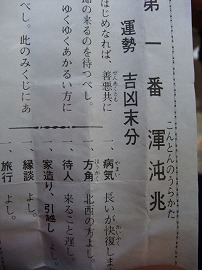 第一番 渾沌兆
こんとんのうらかた
運勢 吉凶末分
はじめなれば、善悪共に
ぜんあくとも
の来るのを待つべし。
ゆくゆくあかるい方に
べし。此のみくじにあ
一、病気 長いが快復しま
やまい
かいふく
一、方角 北西の方よし。
一、待人 来ること遅し。
一、家造り、引越し よし。
一、縁談 よし。
一、旅行 よし。